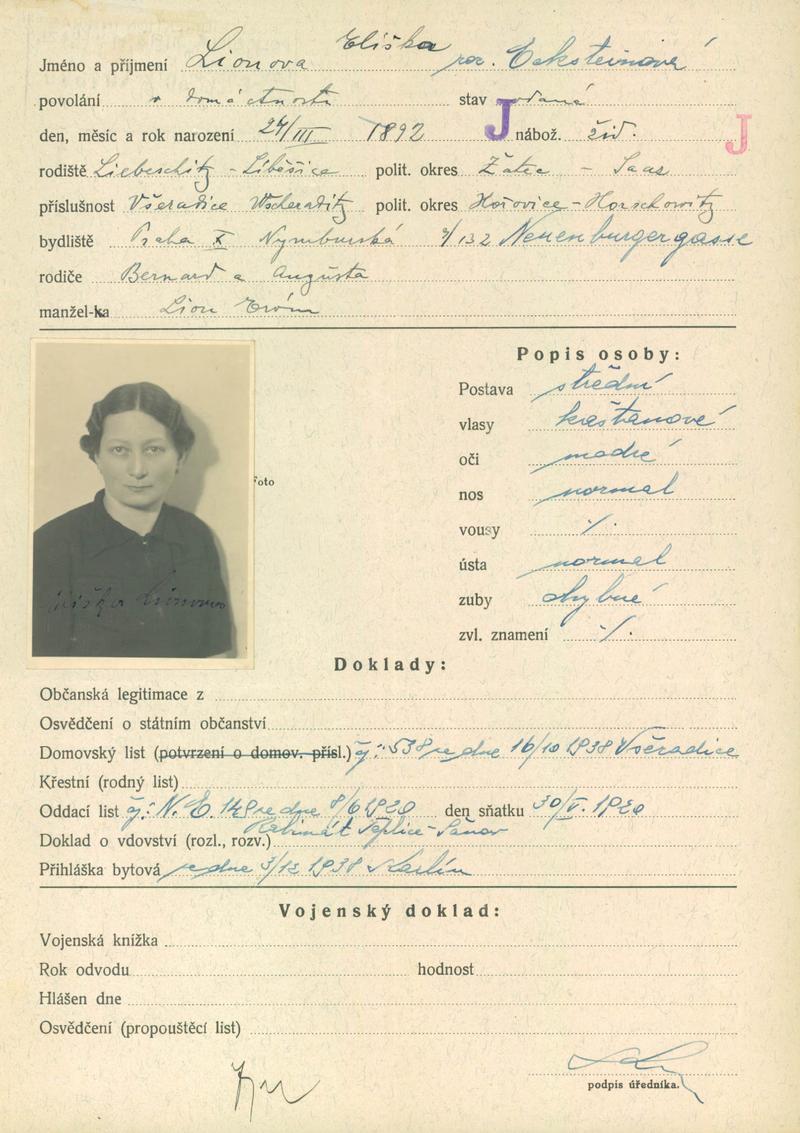 Jméno a příjmení Lionova Eliška roz. Ecksteinová
povolání v domácnosti stav vdaná
den, měsíc a rok narození 24/III 1892 J nábož. žid. J
rodiště Liebeschitz - Liběšice polit. okres Žatec - Saaz
příslušnost Všeradice Wscheraditz polit. okres Hořovice - Horschowitz
bydliště Praha X Nymburská 4/132 Neuenburgergasse
rodiče Bernard a Augusta
manžel-ka Lion Ervín
Popis osoby:
Postava střední
vlasy kaštanové
oči modré
Foto
nos normal
vousy ·/·
ústa normal
zuby chybné
zvl. znamení ·/·
Eliška Lionova
Doklady:
Občanská legitimace z
Osvědčení o státním občanství
Domovský list (potvrzení o domov. přísl.) čj: 538 ze dne 16/10 1938 Všeradice
Křestní (rodný list)
Oddací list čj: N.E. 149 ze dne 8/6 1920 den sňatku 30/V. 1920
Rabinát Teplice-Šanov
Doklad o vdovství (rozl., rozv.)
Přihláška bytová ze dne 3/12 1938 Karlín
Vojenský doklad:
Vojenská knížka
Rok odvodu hodnost
Hlášen dne
Osvědčení (propouštěcí list)
podpis úředníka.